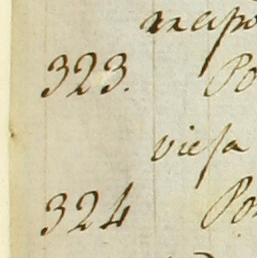 323. Po
viesa
324 Po